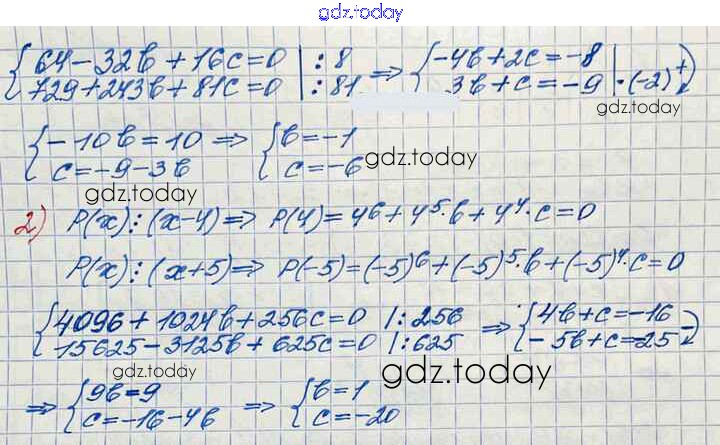 gdz.today
{ 64 - 32b + 16c = 0 | : 8 ⇒ { -4b + 2c = -8 | +
{ 729 + 243b + 81c = 0 | : 81 { 3b + c = -9 | · (-2)
gdz.today
{ -10b = 10 ⇒ { b = -1
{ c = -9 - 3b { c = -6 gdz.today
gdz.today
2) P(x) : (x-4) ⇒ P(4) = 4⁶ + 4⁵·b + 4⁴·c = 0
P(x) : (x+5) ⇒ P(-5) = (-5)⁶ + (-5)⁵·b + (-5)⁴·c = 0
{ 4096 + 1024b + 256c = 0 | : 256 ⇒ { 4b + c = -16 -
{ 15625 - 3125b + 625c = 0 | : 625 { -5b + c = -25
gdz.today gdz.today
⇒ { 9b = 9 ⇒ { b = 1
{ c = -16 - 4b { c = -20